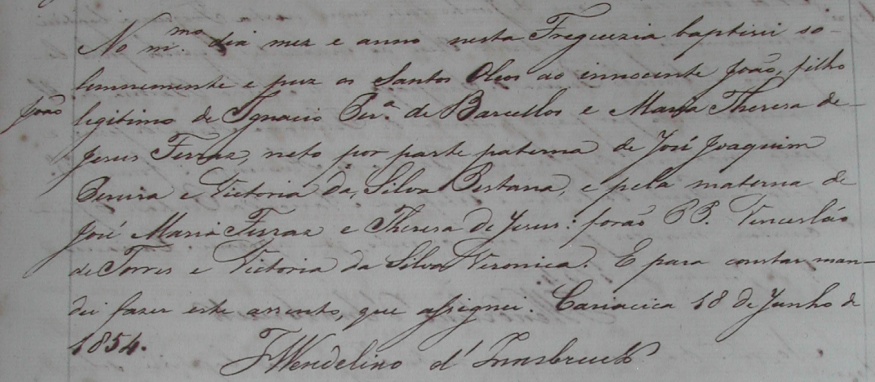 No m.mo dia mez e anno nesta Freguezia baptizei so-
lemnemente e puz os Santos Oleos ao innocente João, filho
João
legitimo de Ignacio Per.ª de Barcellos e Maria Thereza de
Jesus Ferraz, neto por parte paterna de José Joaquim
Pereira e Victoria da Silva Pestana, e pela materna de
José Maria Ferraz e Thereza de Jesus: forão PP. Vencesláo
de Torres e Victoria da Silva Veronica. E para constar man-
dei fazer este assento, que assignei. Cariacica 18 de Junho de
1854.
F Wendelino d'Innsbruck